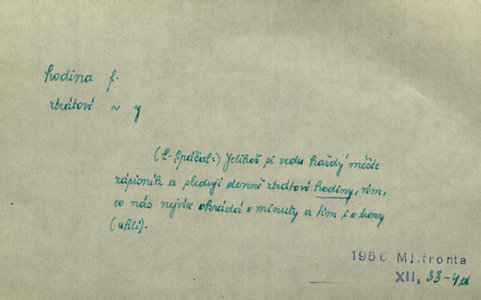 hodina f.
ztrátové ~ y
(E. Spáčal:) Jelikož si vedu každý měsíc
zápisník a sleduji denně ztrátové hodiny, vím,
co nás nejvíce okrádá o minuty a tím i o tuny
(uhlí).
1956 Ml.fronta
XII, 33-4d